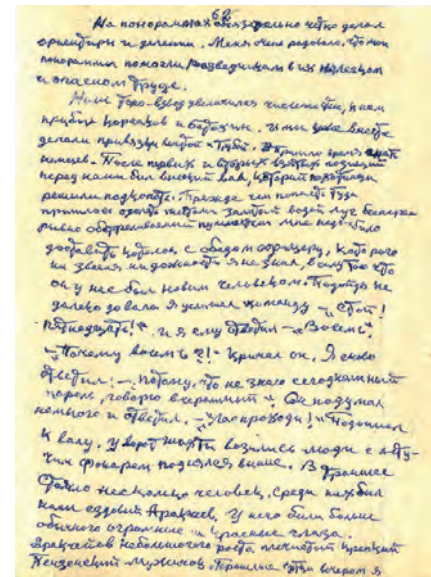 62
На панорамах обязательно четко делал
ориентиры и деления. Меня очень радовало, что мои
панорамы помогли разведчицам в их нелегком
и опасном труде.
Наш топо-взвод увеличился численно, к нам
прибыл Корсаков и Бабацин. И мы уже вместе
делали привязки
немцев. После первых и вторых взятых позиций
перед нами был высокий вал, который
решили подкопать. Прежде чем попасть туда
пришлось залитый водой луг
обстреливаемый Мне надо было
доставить котелок с обедом офицеру, которого
ни звания ни должности я не знал, в силу того что
он у нас был новым человеком. Подойдя не
далеко до вала я услышал команду — "Стой!
пятнадцать!" и я ему ответил — "Восемь".
— "Почему восемь?!" — кричал он. Я снова
ответил: — "потому, что не знаю сегодняшний
пароль, говорю вчерашний". Он подумал
немного и ответил, — "Ладно проходи!" Подошел
к валу. У ворот шахты возились люди с
фонарем поднялся выше. В траншее
стояло несколько человек, среди них был
наш ездовой Аракчеев. У него были больше
обычного огромные и красные глаза.
Аракчеев небольшого роста плечистый крепкий
Пензенский мужичок. Прошлые сутки вечером я